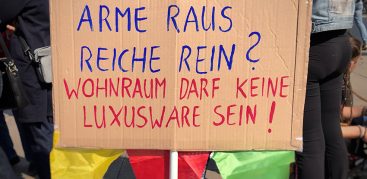 ARME RAUS
REICHE REIN?
WOHNRAUM DARF KEINE
LUXUSWARE SEIN!